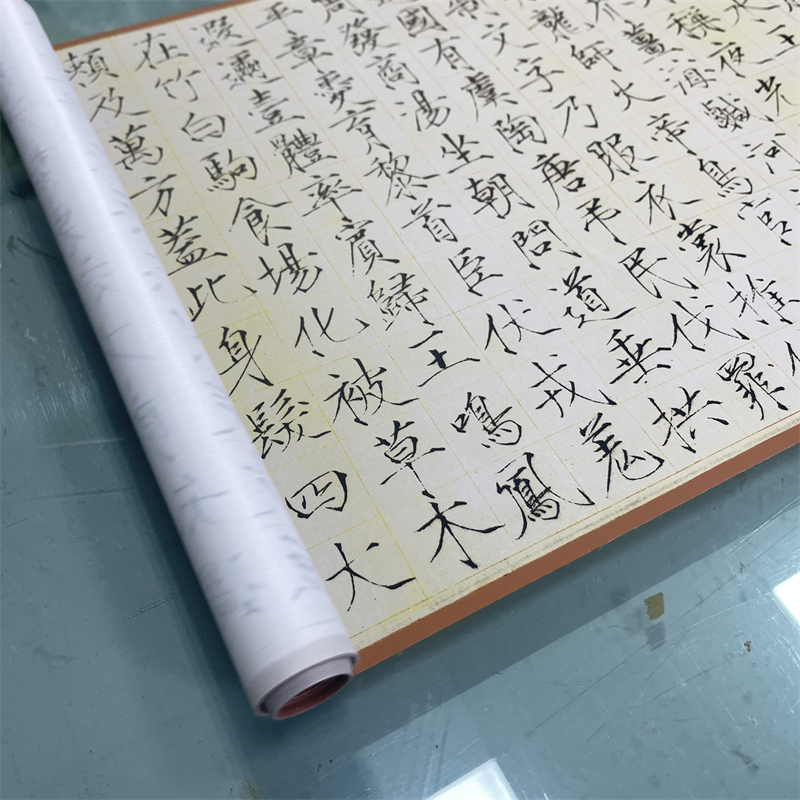 芥薑海鹹河
龍師火帝鳥官
制文字乃服衣裳推
國有虞陶唐弔民伐罪
周發商湯坐朝問道垂拱
平章愛育黎首臣伏戎羌
遐邇壹體率賓歸王鳴鳳
在竹白駒食場化被草木
賴及萬方蓋此身髮四大